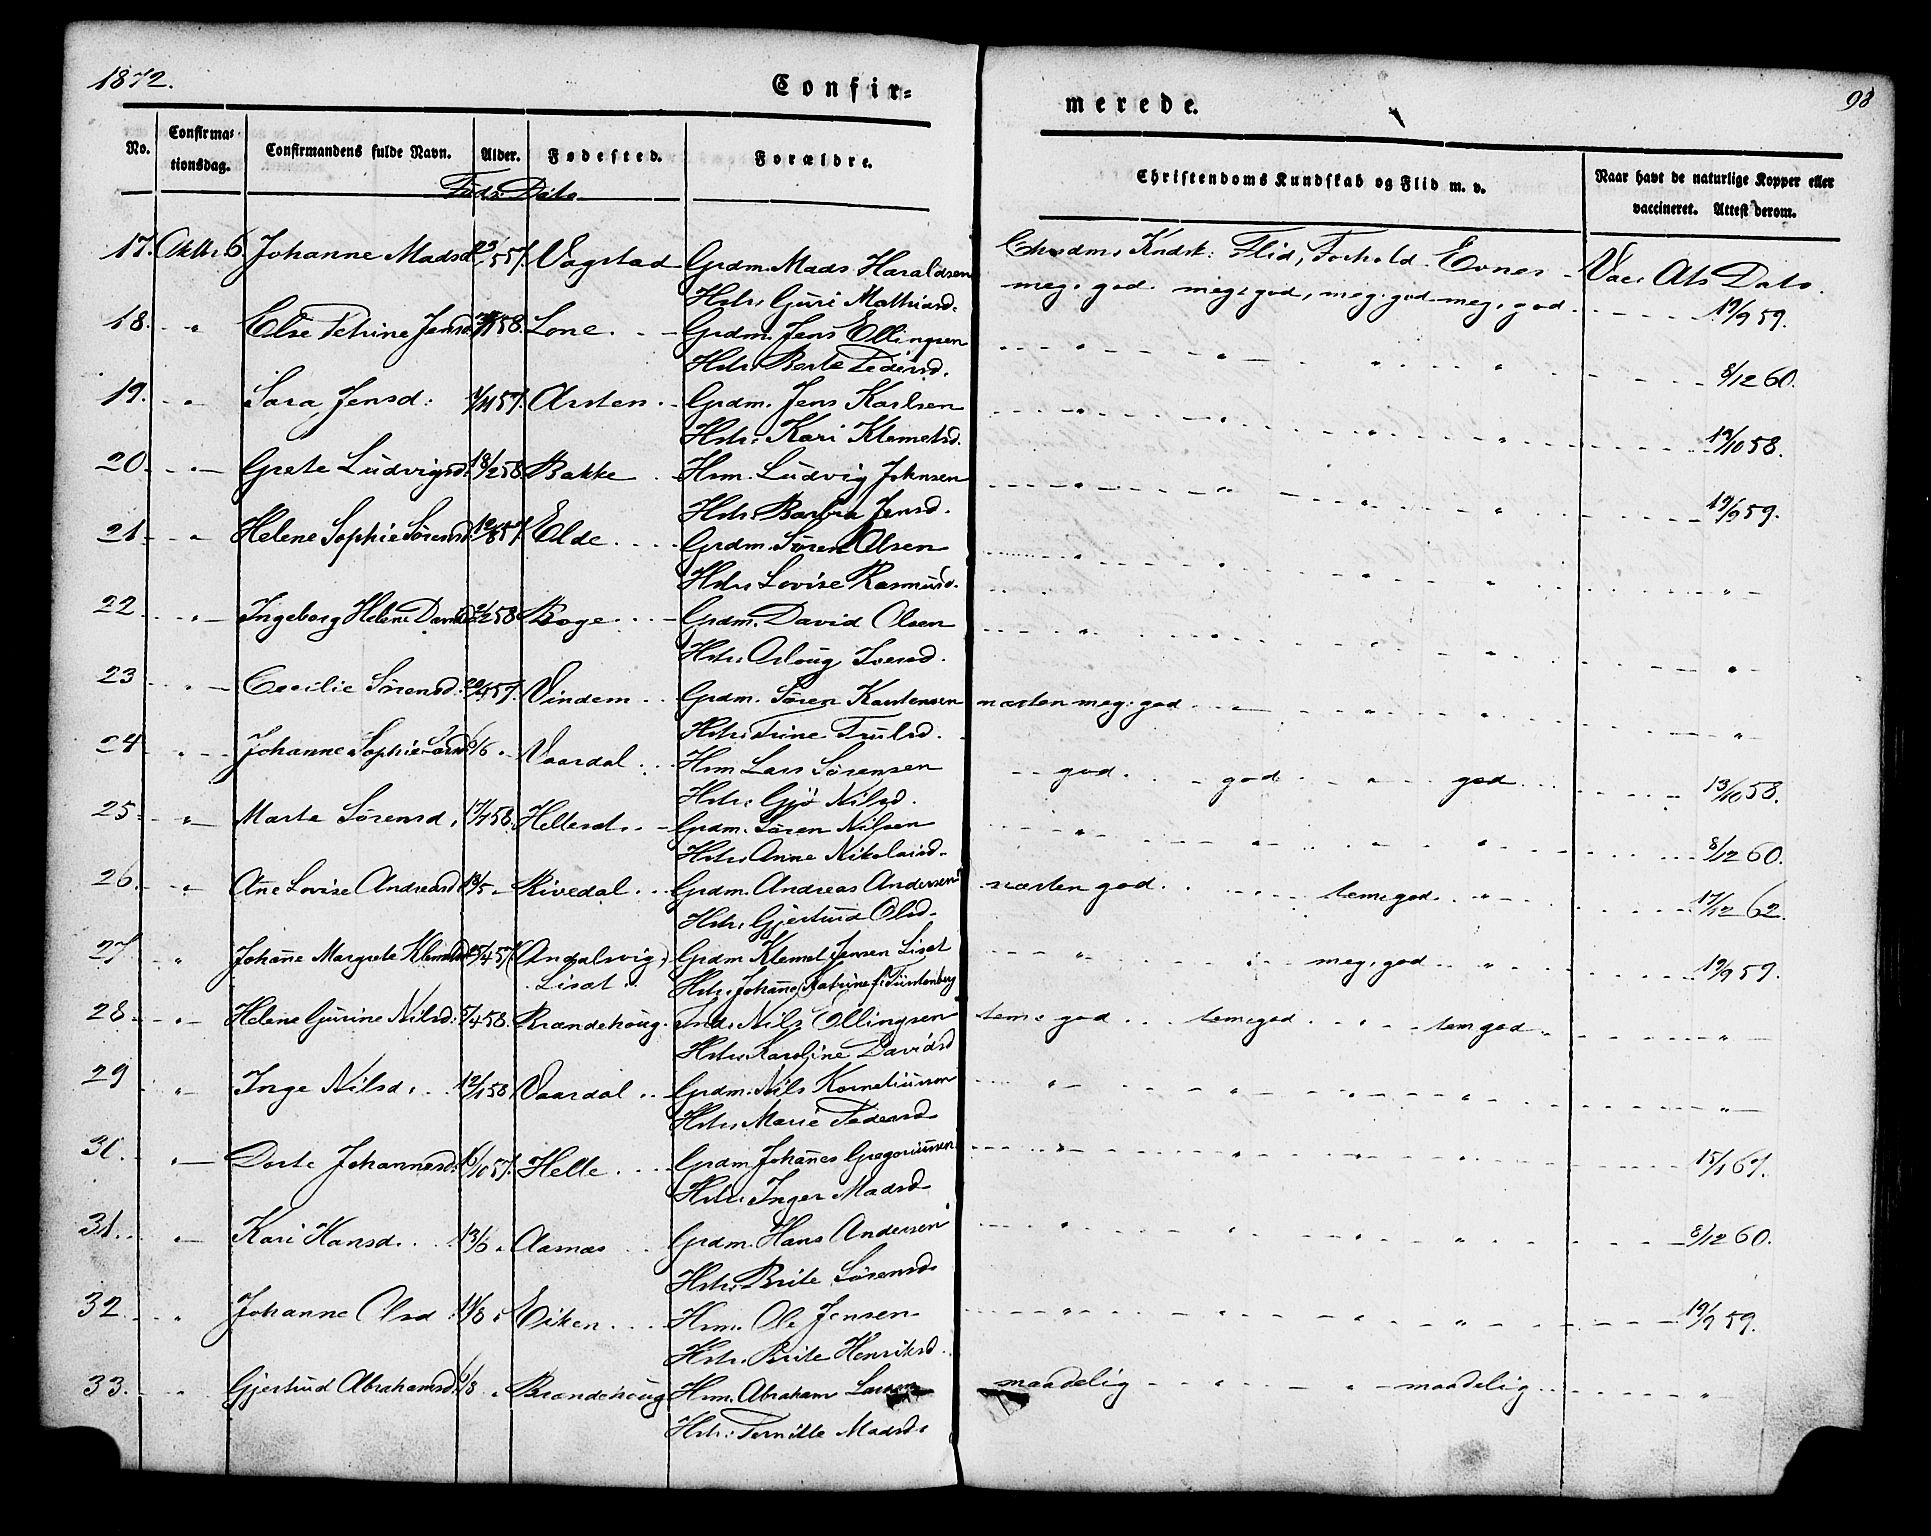 1872.
Confir=
merede.
98
No.
Confirma=
tionsdag.
Confirmandens fulde Navn.
Alder.
Fødested.
Forældre.
Christendoms Kundskab og Flid m. v.
Naar havt de naturlige Kopper eller
vaccineret. Attest derom.
Føds: Dato
Chrsdms Kndsk: Flid, Forhold Evner Vac. Ats Dato.
17. Oktbr 6. Johanne Madsd 557. Vagstad Grdm. Mads Haraldsen
Hstr. Guri Mathiasd. meg. god. meg. god, meg. god meg. god. 19/9 59.
18. " Else Petrine Jensd. 58. Lone. Grdm. Jens Ellingsen
Hstr. Berte Pedersd. 8/12 60.
19. " Sara Jensd: 1/11 57. Arsten Grdm. Jens Karlsen
Hstr. Kari Klemetsd. 12/10 58.
20. " Grete Ludvigsd. 18/2 58. Bakke Hsm. Ludvig Johnsen
Hstr. Barbra Jensd. 19/9 59.
21. " Helene Sophie Sørensd. 12/8 57. Elde Grdm. Søren Olsen
Hstr. Lovise Rasmusd. "
22. " Ingeborg Helene Davidsd 2/2 58 Boge Grdm. David Olsen
Hstr. Aslaug Iversd. "
23 " Cecilie Sørensd. 20/4 57. Vindem Grdm. Søren Karstensen næsten meg. god
Hstr. Trine Trulsd. "
24 " Johanne Sophie Larsd 6/6 " Vaardal Hsm Lars Sørensen god. god " god
Hstr. Gjø Nilsd. 13/10 58.
25 " Marte Sørensd. 17/4 58. Hellesæt Grdm. Søren Nilsen
Hstr. Anne Nikolaisd. 8/12 60.
26. " Ane Lovise Andreasd 18/5 " Rivedal Grdm. Andreas Andersen næsten god. temg god. " 17/12 62.
Hstr. Gjertrud Olsd.
27 " Johanne Margrete Klemetsd 25/4 57 (Andalsvig) Grdm Klemet Jensen Lisæt " meg. god " 19/9 59.
Lisæt Hstr. Johanne Katrine f. Fürstenberg
28 " Helene Gurine Nilsd. 5/4 58. Brandehoug. Inds. Nils Ellingsen temg god temg god. " temgod "
Hstr. Karoline Davidsd
29 " Inge Nilsd. 12/1 58. Vaardal Grdm. Nils Korneliussen "
Hstr. Marie Pedersd
30. " Dorte Johannesd. 16/10 57. Helle Grdm. Johannes Gregoriussen 15/1 61.
Hstr. Inger Madsd
31. " Kari Hansd. 13/6 " Aasnæs Grdm. Hans Andersen 8/12 60.
Hstr. Brite Sørensd
32 " Johanne Olsd 11/8 " Eiken Hsm. Ole Jensen 19/9 59.
Hstr. Brite Henriksd.
33. " Gjertrud Abrahamsd. 6/8 " Brandehoug Hsm. Abraham Larsen maadelig " " maadelig "
Hstr. Pernille Madsd.